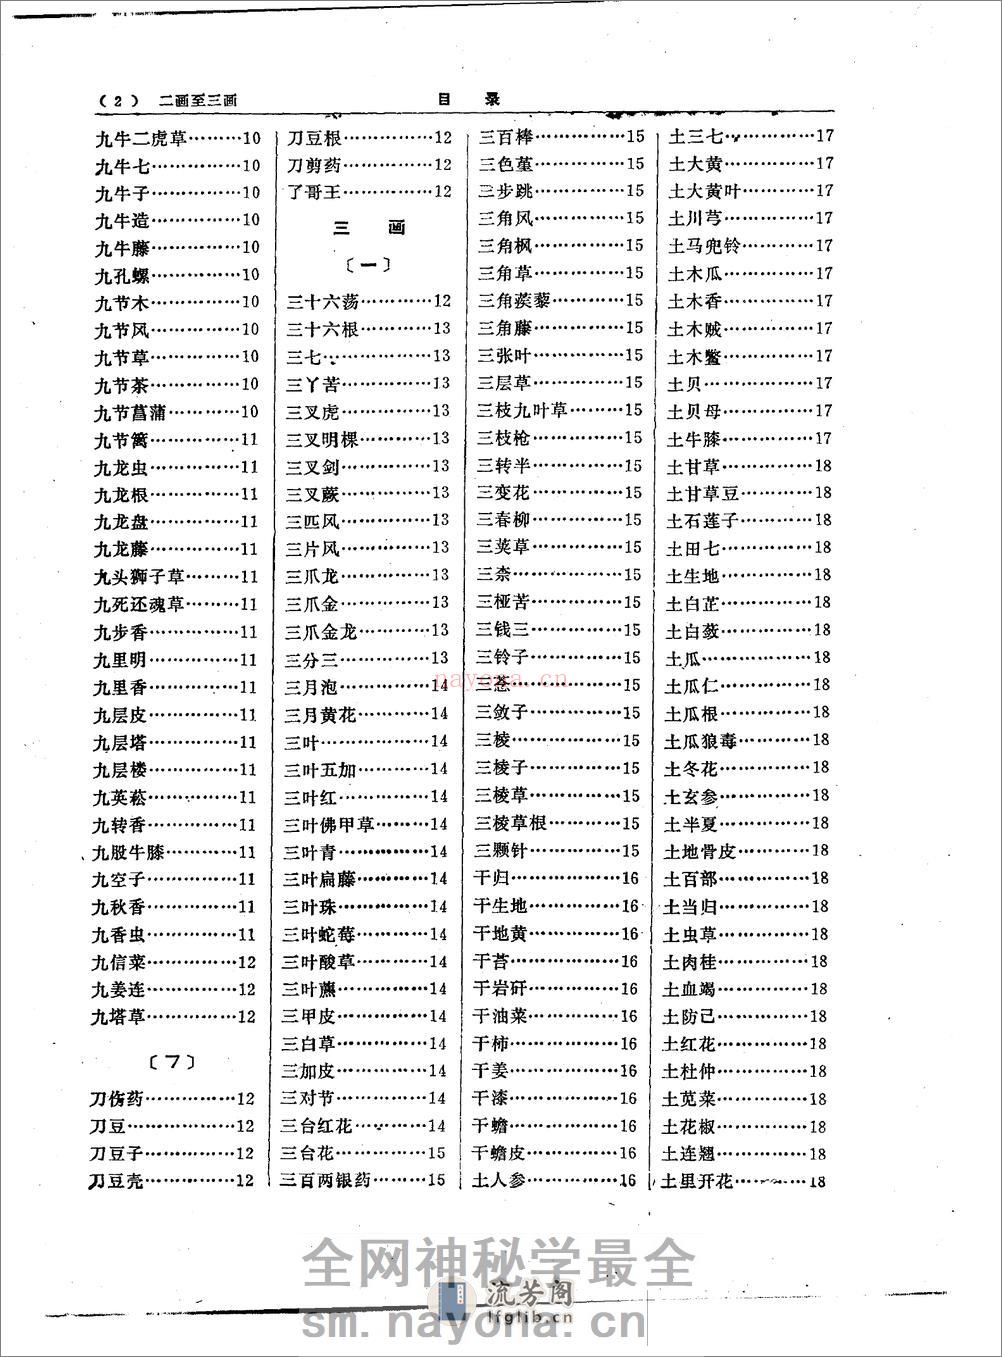 (2) 二画至三画
目 录
九牛二虎草………10
九牛七……………10
九牛子……………10
九牛造……………10
九牛藤……………10
九孔螺……………10
九节木……………10
九节风……………10
九节草……………10
九节茶……………10
九节菖蒲…………10
九节篱……………11
九龙虫……………11
九龙根……………11
九龙盘……………11
九龙藤……………11
九头狮子草………11
九死还魂草………11
九步香……………11
九里明……………11
九里香……………11
九层皮……………11
九层塔……………11
九层楼……………11
九英菘……………11
九转香……………11
九股牛膝…………11
九空子……………11
九秋香……………11
九香虫……………11
九信菜……………12
九姜连……………12
九塔草……………12
〔㇇〕
刀伤药……………12
刀豆………………12
刀豆子……………12
刀豆壳……………12
刀豆根……………12
刀剪药……………12
了哥王……………12
三 画
〔一〕
三十六荡…………12
三十六根…………13
三七………………13
三丫苦……………13
三叉虎……………13
三叉明棵…………13
三叉剑……………13
三叉蕨……………13
三匹风……………13
三片风……………13
三爪龙……………13
三爪金……………13
三爪金龙…………13
三分三……………13
三月泡……………14
三月黄花…………14
三叶………………14
三叶五加…………14
三叶红……………14
三叶佛甲草………14
三叶青……………14
三叶扁藤…………14
三叶珠……………14
三叶蛇莓…………14
三叶酸草…………14
三叶藨……………14
三甲皮……………14
三白草……………14
三加皮……………14
三对节……………14
三台红花…………14
三台花……………15
三百两银药………15
三百棒……………15
三色堇……………15
三步跳……………15
三角风……………15
三角枫……………15
三角草……………15
三角蒺藜…………15
三角藤……………15
三张叶……………15
三层草……………15
三枝九叶草………15
三枝枪……………15
三转半……………15
三变花……………15
三春柳……………15
三荚草……………15
三柰………………15
三桠苦……………15
三钱三……………15
三铃子……………15
三菍………………15
三敛子……………15
三棱………………15
三棱子……………15
三棱草……………15
三棱草根…………15
三颗针……………15
干归………………16
干生地……………16
干地黄……………16
干苔………………16
干岩矸……………16
干油菜……………16
干柿………………16
干姜………………16
干漆………………16
干蟾………………16
干蟾皮……………16
土人参……………16
土三七……………17
土大黄……………17
土大黄叶…………17
土川芎……………17
土马兜铃…………17
土木瓜……………17
土木香……………17
土木贼……………17
土木鳖……………17
土贝………………17
土贝母……………17
土牛膝……………17
土甘草……………18
土甘草豆…………18
土石莲子…………18
土田七……………18
土生地……………18
土白芷……………18
土白蔹……………18
土瓜………………18
土瓜仁……………18
土瓜根……………18
土瓜狼毒…………18
土冬花……………18
土玄参……………18
土半夏……………18
土地骨皮…………18
土百部……………18
土当归……………18
土虫草……………18
土肉桂……………18
土血竭……………18
土防己……………18
土红花……………18
土杜仲……………18
土苋菜……………18
土花椒……………18
土连翘……………18
土里开花…………18
nayona.cn
全网神秘学最全
流芳阁
lfglib.cn
sm.nayona.cn